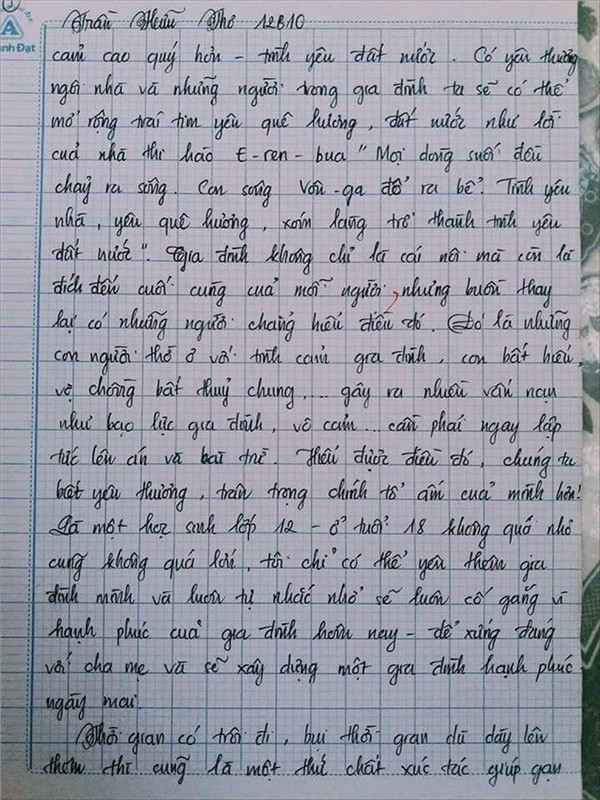 Trần Hữu Thơ 12B10
A
nh Đạt
cảm cao quý hơn – tình yêu đất nước. Có yêu thương
ngôi nhà và những người trong gia đình ta sẽ có thể
mở rộng trái tim yêu quê hương, đất nước như lời
của nhà thi hào E-ren-bua "Mọi dòng suối đều
chảy ra sông. Con sông Vôn-ga đổ ra bể. Tình yêu
nhà, yêu quê hương, xóm làng trở thành tình yêu
đất nước". Gia đình không chỉ là cái nôi mà còn là
đích đến cuối cùng của mỗi người, nhưng buồn thay
lại có những người chẳng hiểu điều đó. Đó là những
con người thờ ơ với tình cảm gia đình, con bất hiếu,
vợ chồng bất thuỷ chung.... gây ra nhiều vấn nạn
như bạo lực gia đình, vô cảm... cần phải ngay lập
tức lên án và bài trừ. Hiểu được điều đó, chúng ta
biết yêu thương, trân trọng chính tổ ấm của mình hơn!
Là một học sinh lớp 12 – ở tuổi 18 không quá nhỏ
cũng không quá lớn, tôi chỉ có thể yêu thêm gia
đình mình và luôn tự nhắc nhở sẽ luôn cố gắng vì
hạnh phúc của gia đình hôm nay – để xứng đáng
với cha mẹ và sẽ xây dựng một gia đình hạnh phúc
ngày mai.
Thời gian có trôi đi, bụi thời gian dù dày lên
thêm thì cũng là một thứ chất xúc tác giúp gạn